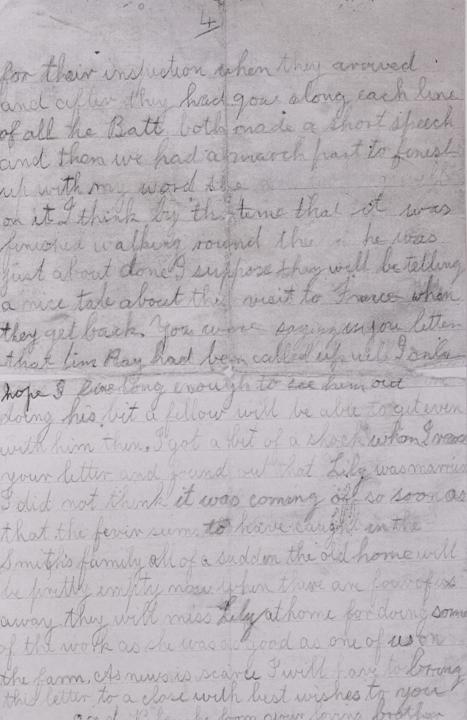 4
for their inspection when they arrived
and after they had gone along each line
of all the Batt. both made a short speech
and then we had a march past to finish
up with my word the
on it I think by the time that it was
finished walking round the he was
just about done I suppose they will be telling
a nice tale about the visit to France when
they get back. You were saying in you letter
that Jim Ray had been called up well I only
hope I live long enough to see him out
doing his bit a fellow will be able to git even
with him then. I got a bit of a shock when I
your letter and found out that Lily was
I did not think it was coming off so soon as
that the fever sums to have caught in the
Smiths family all of a sudden the old home will
be pretty empty now when there are four of us
away they will miss Lily at home for doing some
of the work as she was as good as one of us on
the farm. As news is scarce I will have to bring
this letter to a close with best wishes to you
and from your loving brother